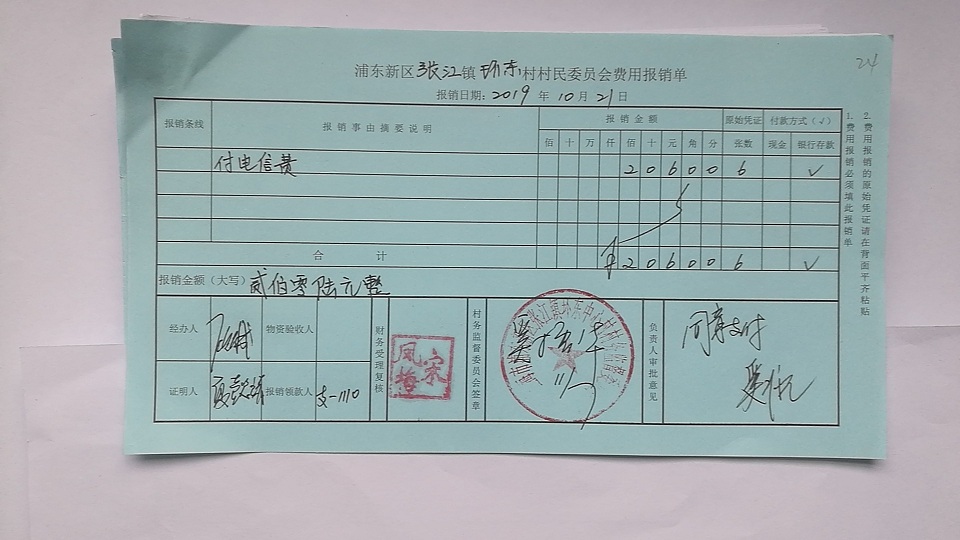 24
浦东新区张江镇环东村村民委员会费用报销单
报销日期：2019 年 10 月 21 日
报销条线 报销事由摘要说明 报销金额 原始凭证 付款方式（√）
佰 十 万 仟 佰 十 元 角 分 张数 现金 银行存款
付电信费 2 0 6 0 0 6 √
合 计 ¥ 2 0 6 0 0 6 √
报销金额（大写） 贰佰零陆元整
经办人 物资验收人 财务受理复核 村务监督委员会签章 负责人审批意见 同意支付
宋凤梅
证明人 报销领款人 支-1110
1.费用报销必须填此报销单
2.费用报销的原始凭证请在背面平齐粘贴